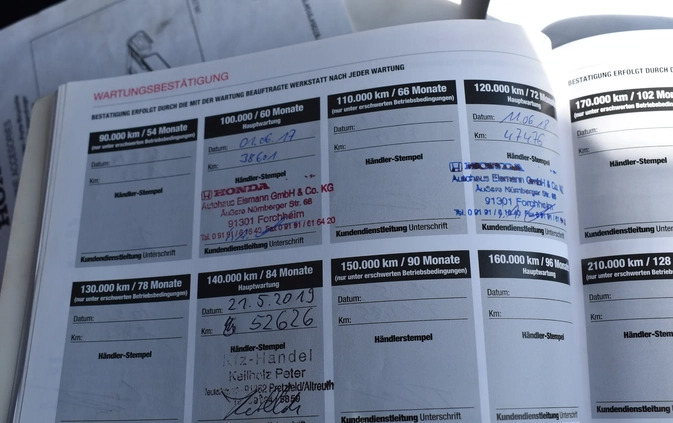 WARTUNGSBESTÄTIGUNG
BESTÄTIGUNG ERFOLGT DURCH DIE MIT DER WARTUNG BEAUFTRAGTE WERKSTATT NACH JEDER WARTUNG
90.000 km / 54 Monate
(nur unter erschwerten Betriebsbedingungen)
Datum:
Km:
Händler-Stempel
Kundendienstleitung Unterschrift
100.000 km / 60 Monate
Hauptwartung
Datum: 01.06.17
Km: 38601
Händler-Stempel
HONDA
Autohaus Eismann GmbH & Co. KG
Äußere Nürnberger Str. 68
91301 Forchheim
Kundendienstleitung Unterschrift
110.000 km / 66 Monate
(nur unter erschwerten Betriebsbedingungen)
Datum:
Km:
Händler-Stempel
Kundendienstleitung Unterschrift
120.000 km / 72
Hauptwartung
Datum: 11.06.18
Km: 47476
Händler-Stempel
HONDA
Autohaus Eismann GmbH & Co. KG
Äußere Nürnberger Str. 68
91301 Forchheim
Kundendienstleitung Unterschrift
BESTÄTIGUNG ERFOLGT DURCH
170.000 km / 102
(nur unter erschwerten
Datum:
Km:
130.000 km / 78 Monate
(nur unter erschwerten Betriebsbedingungen)
Datum:
Km:
Händler-Stempel
140.000 km / 84 Monate
Hauptwartung
Datum: 21.5.2019
Km: 52626
Händler-Stempel
Kfz-Handel
Keilholz Peter
Pretzfeld/Altreuth
150.000 km / 90 Monate
(nur unter erschwerten Betriebsbedingungen)
Datum:
Km:
Händlerstempel
Kundendienstleitung Unterschrift
160.000 km / 96 Monate
Hauptwartung
Datum:
Km:
Händler-Stempel
Kundendienstleitung Unterschrift
210.000 km / 128
(nur unter erschwerten
Datum:
Km:
Händler-Stempel
Kundendienstleitung